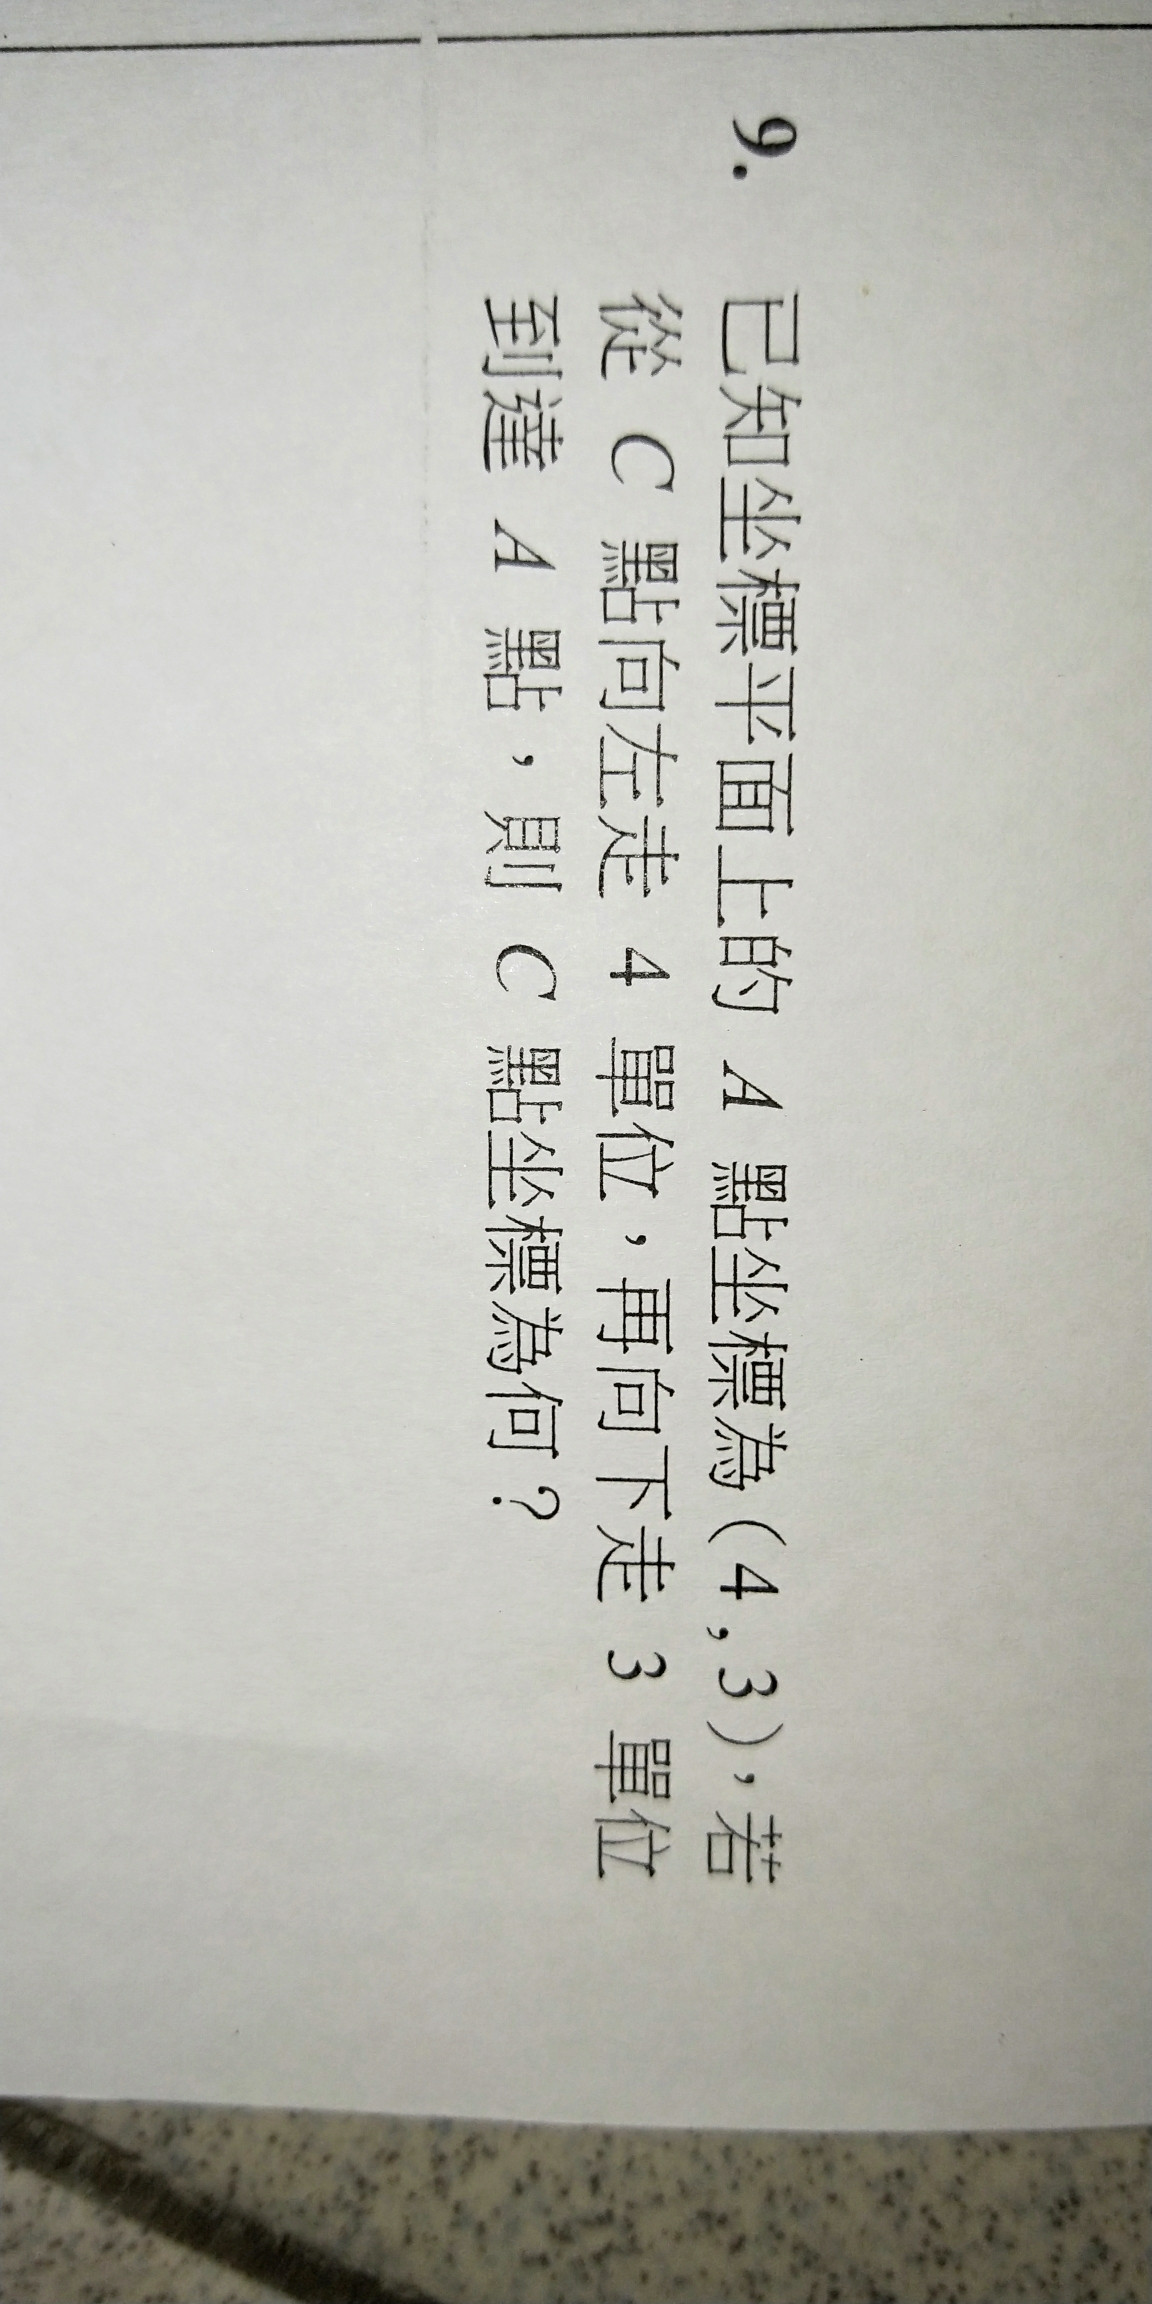 9. 已知坐標平面上的 A 點坐標為(4,3),若
從 C 點向左走 4 單位,再向下走 3 單位
到達 A 點,則 C 點坐標為何?